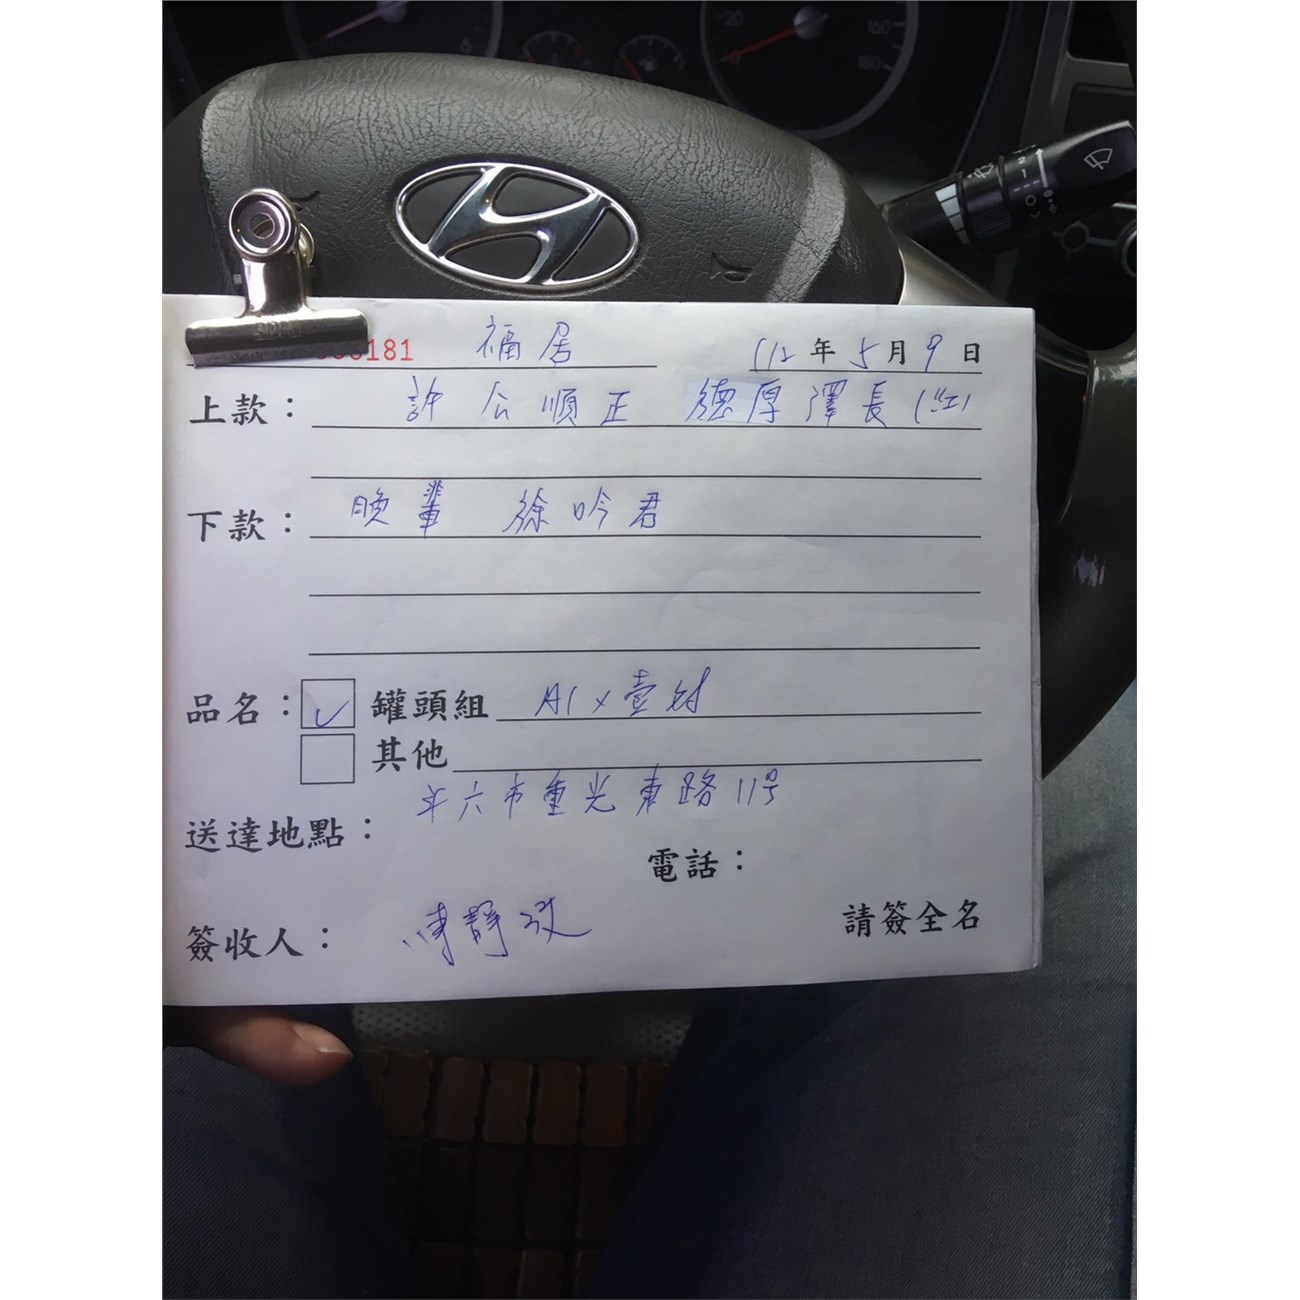 181 福居 112年5月9日
上款： 許公順正 德厚澤長 (紅)
下款： 晚輩 徐吟君
品名： 罐頭組 A1x壹对
其他
斗六市重光東路11号
送達地點：
電話：
簽收人： 陳靜 請簽全名